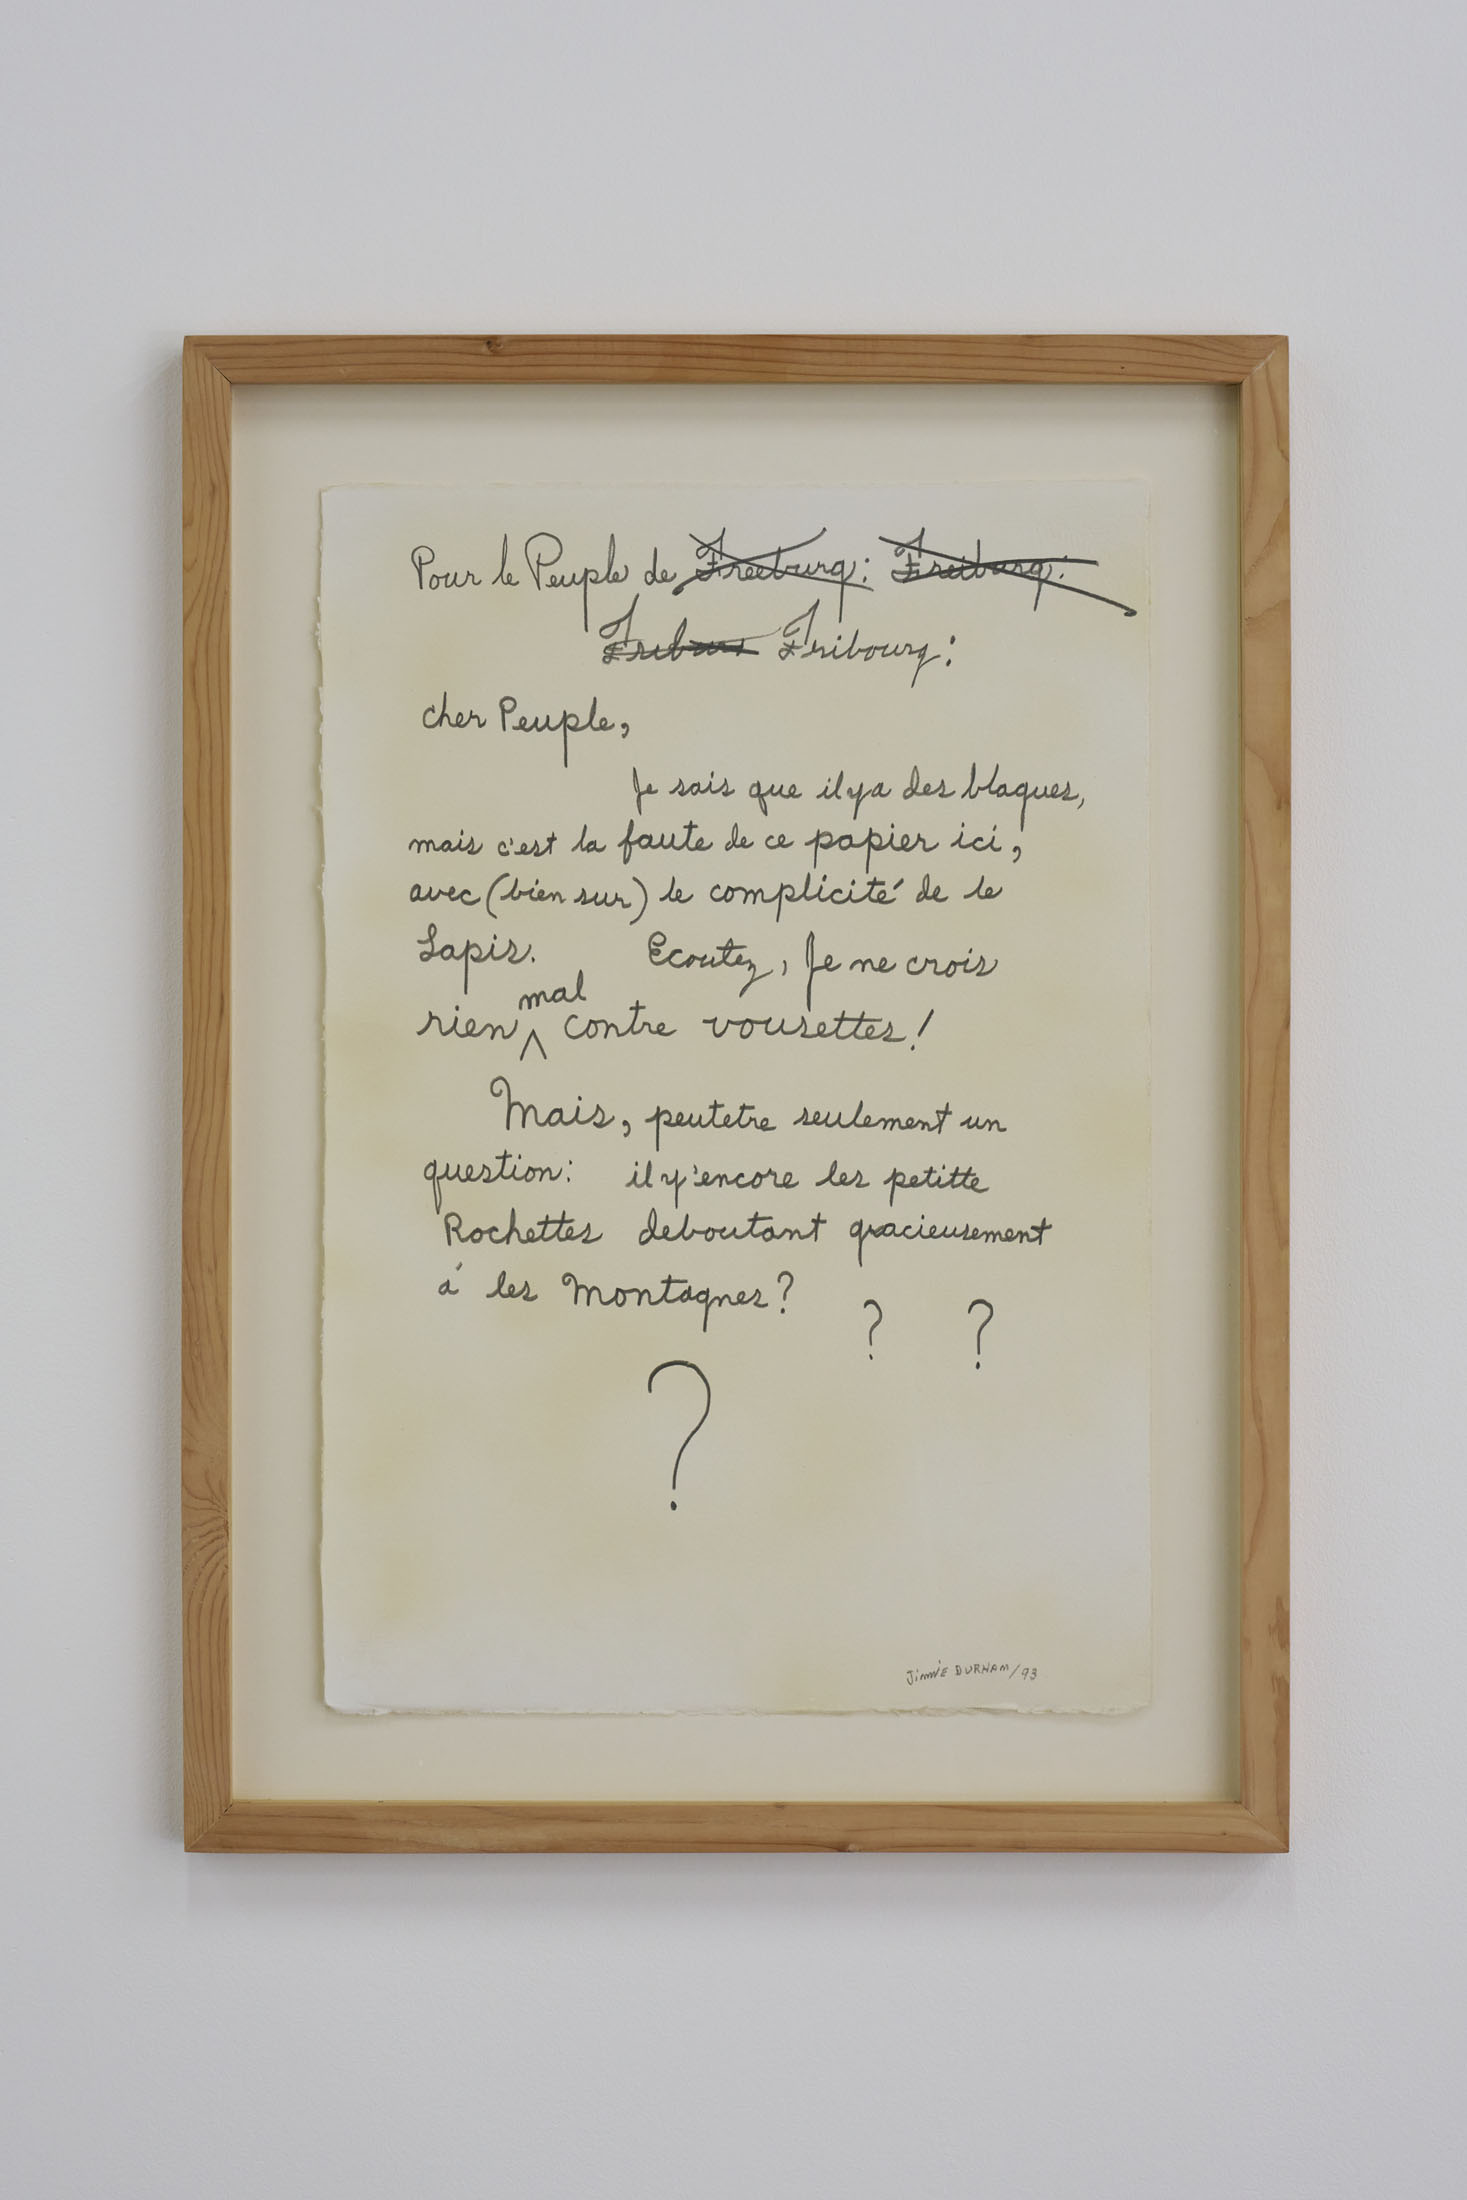 Pour le Peuple de Freeburg: Freiburg:
Friburs Fribourg:
cher Peuple,
Je sais que ilya des blaques,
mais c'est la faute de ce papier ici,
avec (bien sur) le complicité de le
Lapis. Ecoutez, Je ne crois
mal
rien ^ contre vousettes!
Mais, peutetre seulement un
question: il y'encore les petitte
Rochettes deboutant gracieusement
á les Montagnes? ? ?
?
Jimmie DURHAM/93